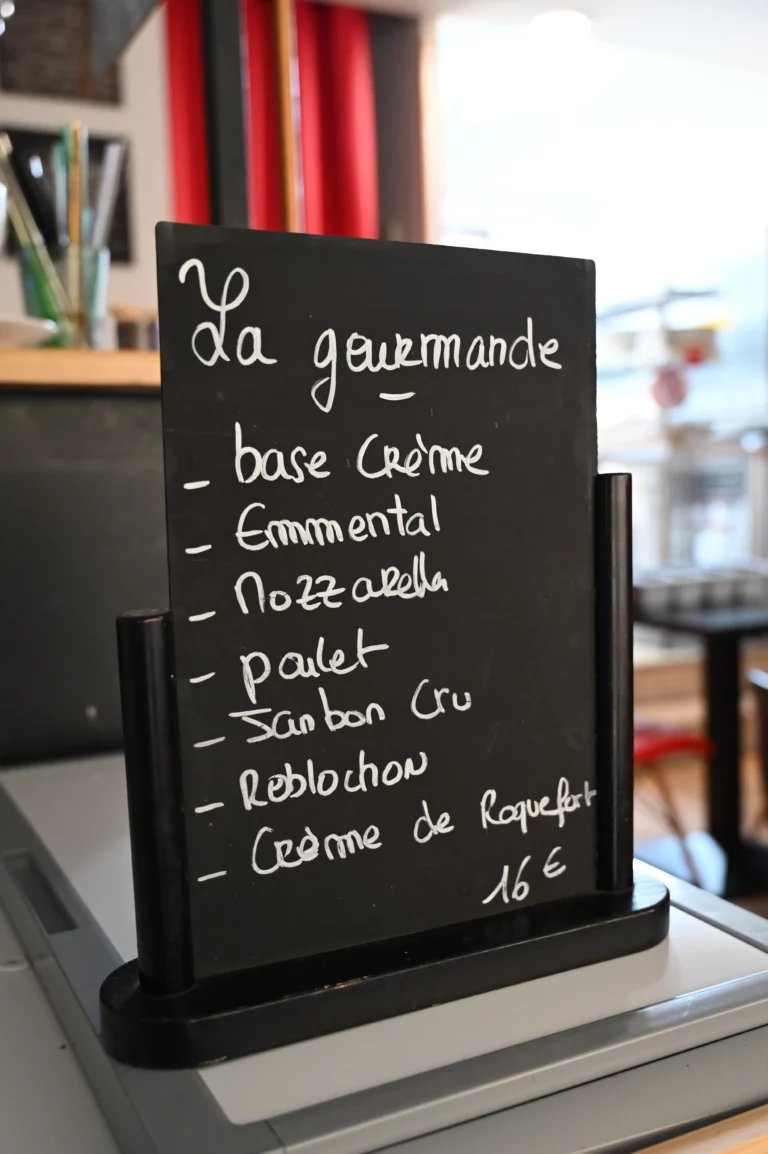 La gourmande
- base Crème
- Emmental
- Mozzarella
- poulet
- Jambon Cru
- Reblochon
- Crème de Roquefort
16 €